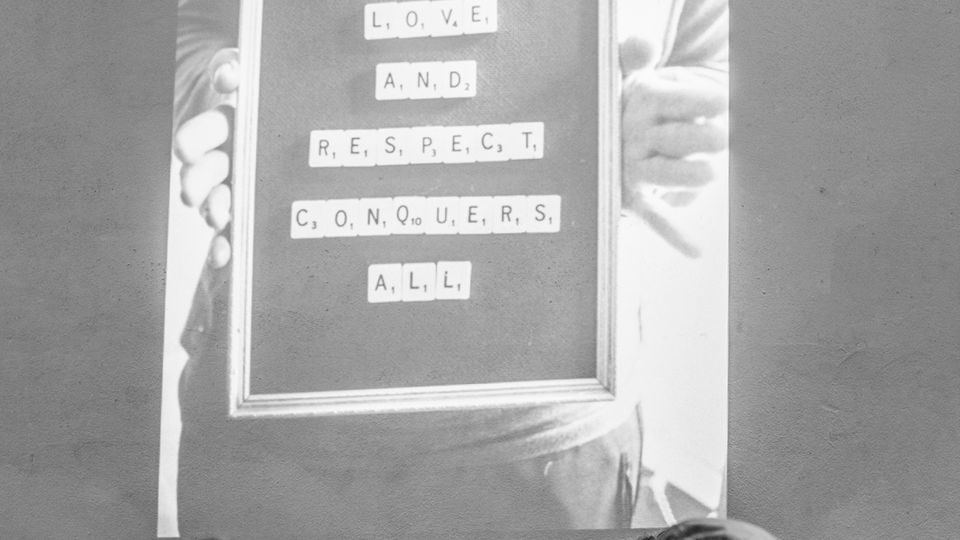 LOVE
AND
RESPECT
CONQUERS
ALL